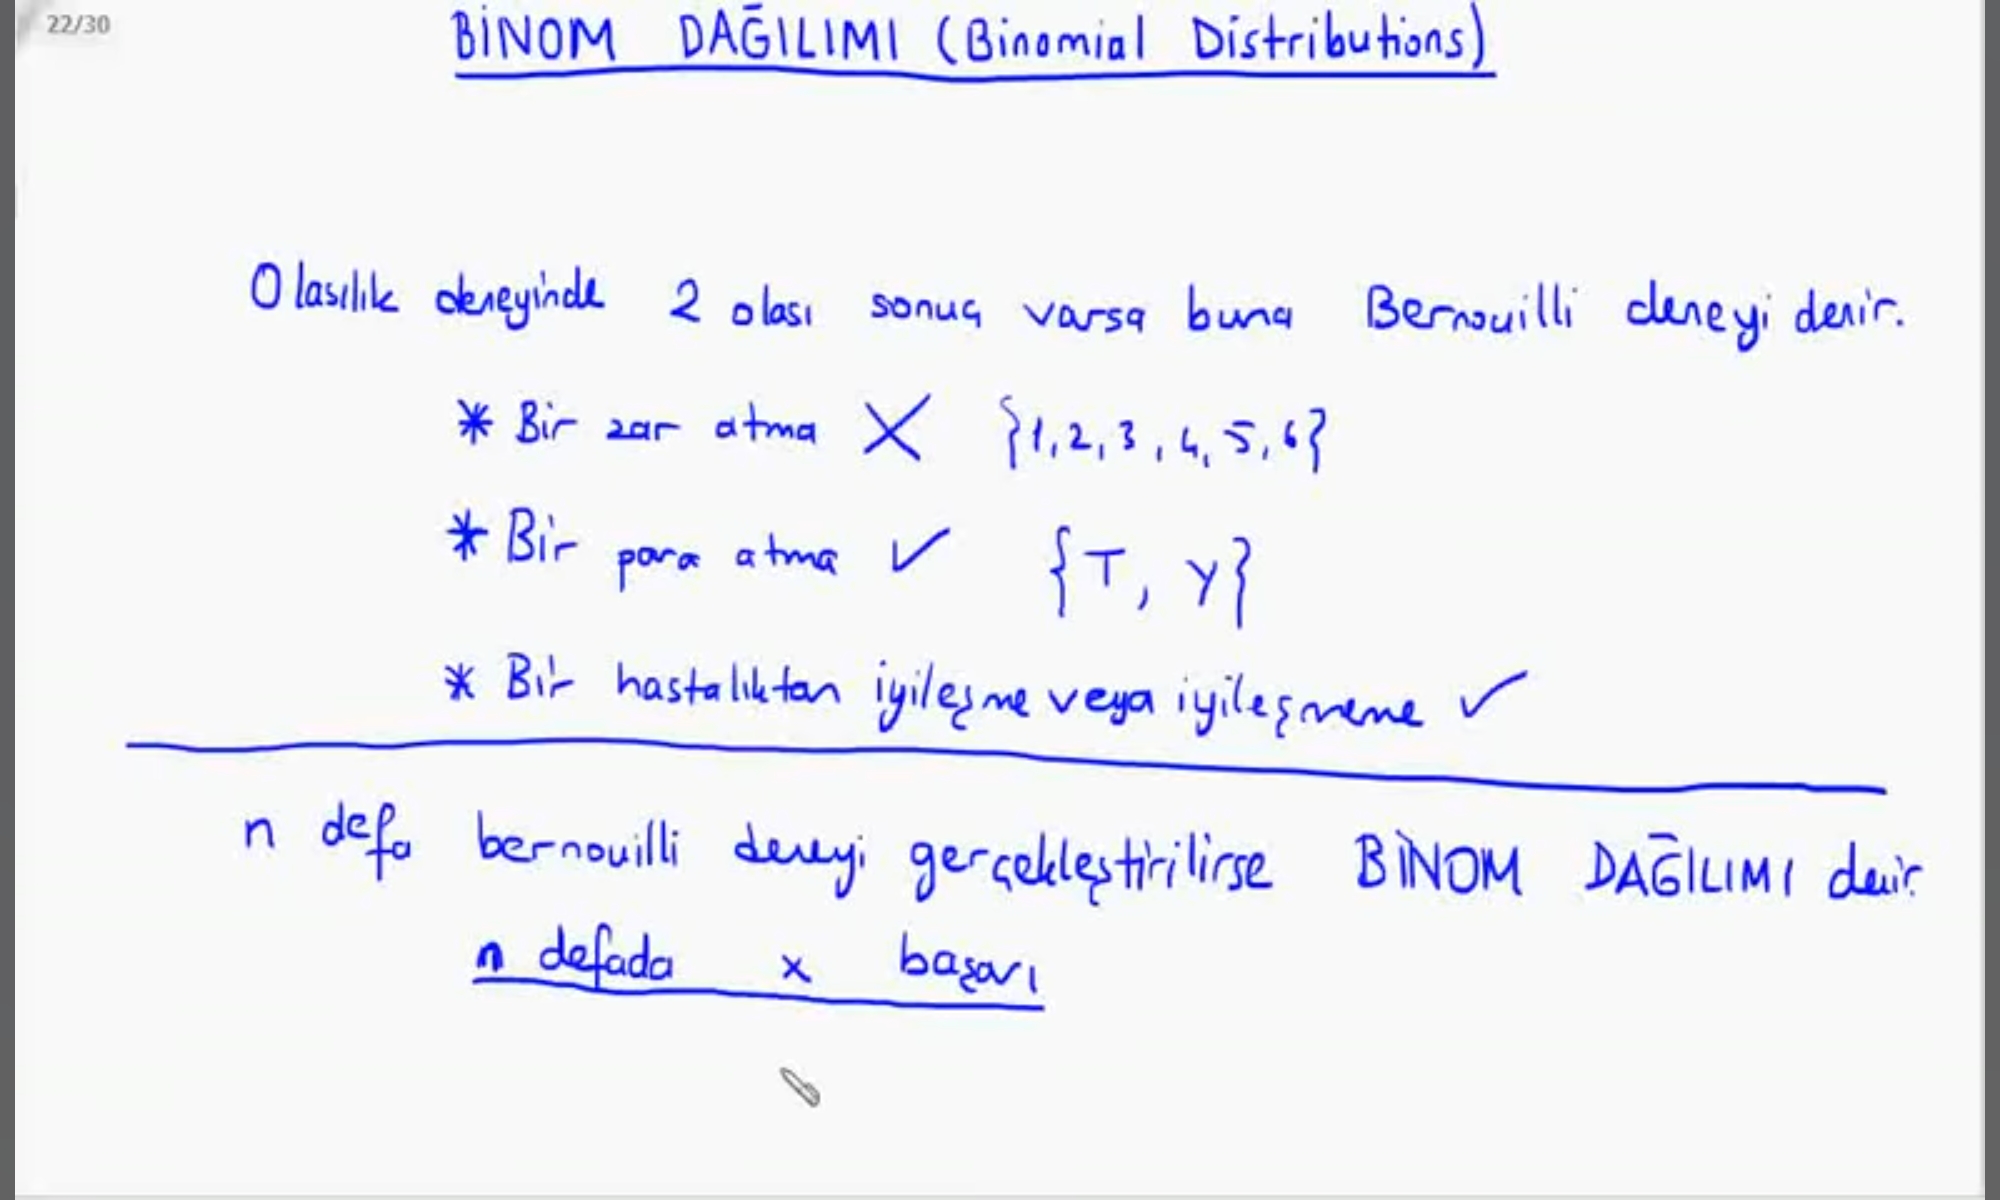 22/30
BİNOM DAĞILIMI (Binomial Distributions)
Olasılık deneyinde 2 olası sonuç varsa buna Bernouilli deneyi denir.
* Bir zar atma X {1,2,3,4,5,6}
* Bir para atma ✓ {T, Y}
* Bir hastalıktan iyileşme veya iyileşmeme ✓
n defa bernouilli deneyi gerçekleştirilirse BİNOM DAĞILIMI denir.
n defada x başarı